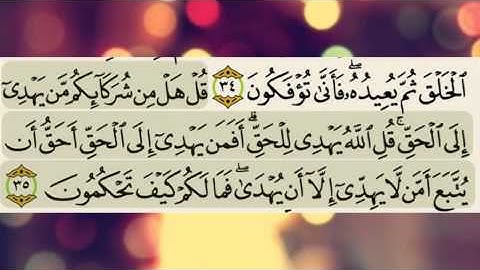 ٱلْخَلْقَ ثُمَّ يُعِيدُهُۥۖ فَأَنَّىٰ تُؤْفَكُونَ ٣٤ قُلْ هَلْ مِن شُرَكَآئِكُم مَّن يَهْدِىٓ
إِلَى ٱلْحَقِّۚ قُلِ ٱللَّهُ يَهْدِى لِلْحَقِّۗ أَفَمَن يَهْدِىٓ إِلَى ٱلْحَقِّ أَحَقُّ أَن
يُتَّبَعَ أَمَّن لَّا يَهِدِّىٓ إِلَّآ أَن يُهْدَىٰۖ فَمَا لَكُمْ كَيْفَ تَحْكُمُونَ ٣٥